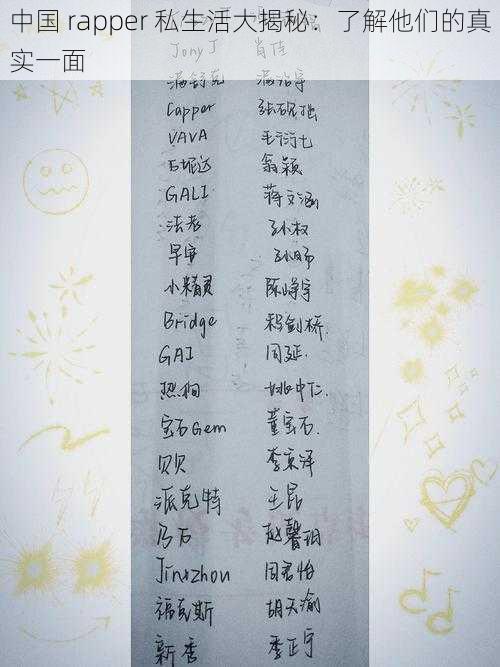 中国 rapper 私生活大揭秘：了解他们的真
实一面
Jony J 肖佳
满舒克 满治宇
Capper 张砚拙
VAVA 毛衍七
万妮达 翁颖
GALI 蒋文涵
法老 孙权
早安 孙师
小精灵 陈峥宇
Bridge 程剑桥.
GAI 周延.
熙桐 姚中仁.
宝石Gem 董宝石.
贝贝 李京泽
派克特 王昆
乃万 赵馨玥
Jinxzhou 周君怡
福克斯 胡天渝
新秀 李正宁